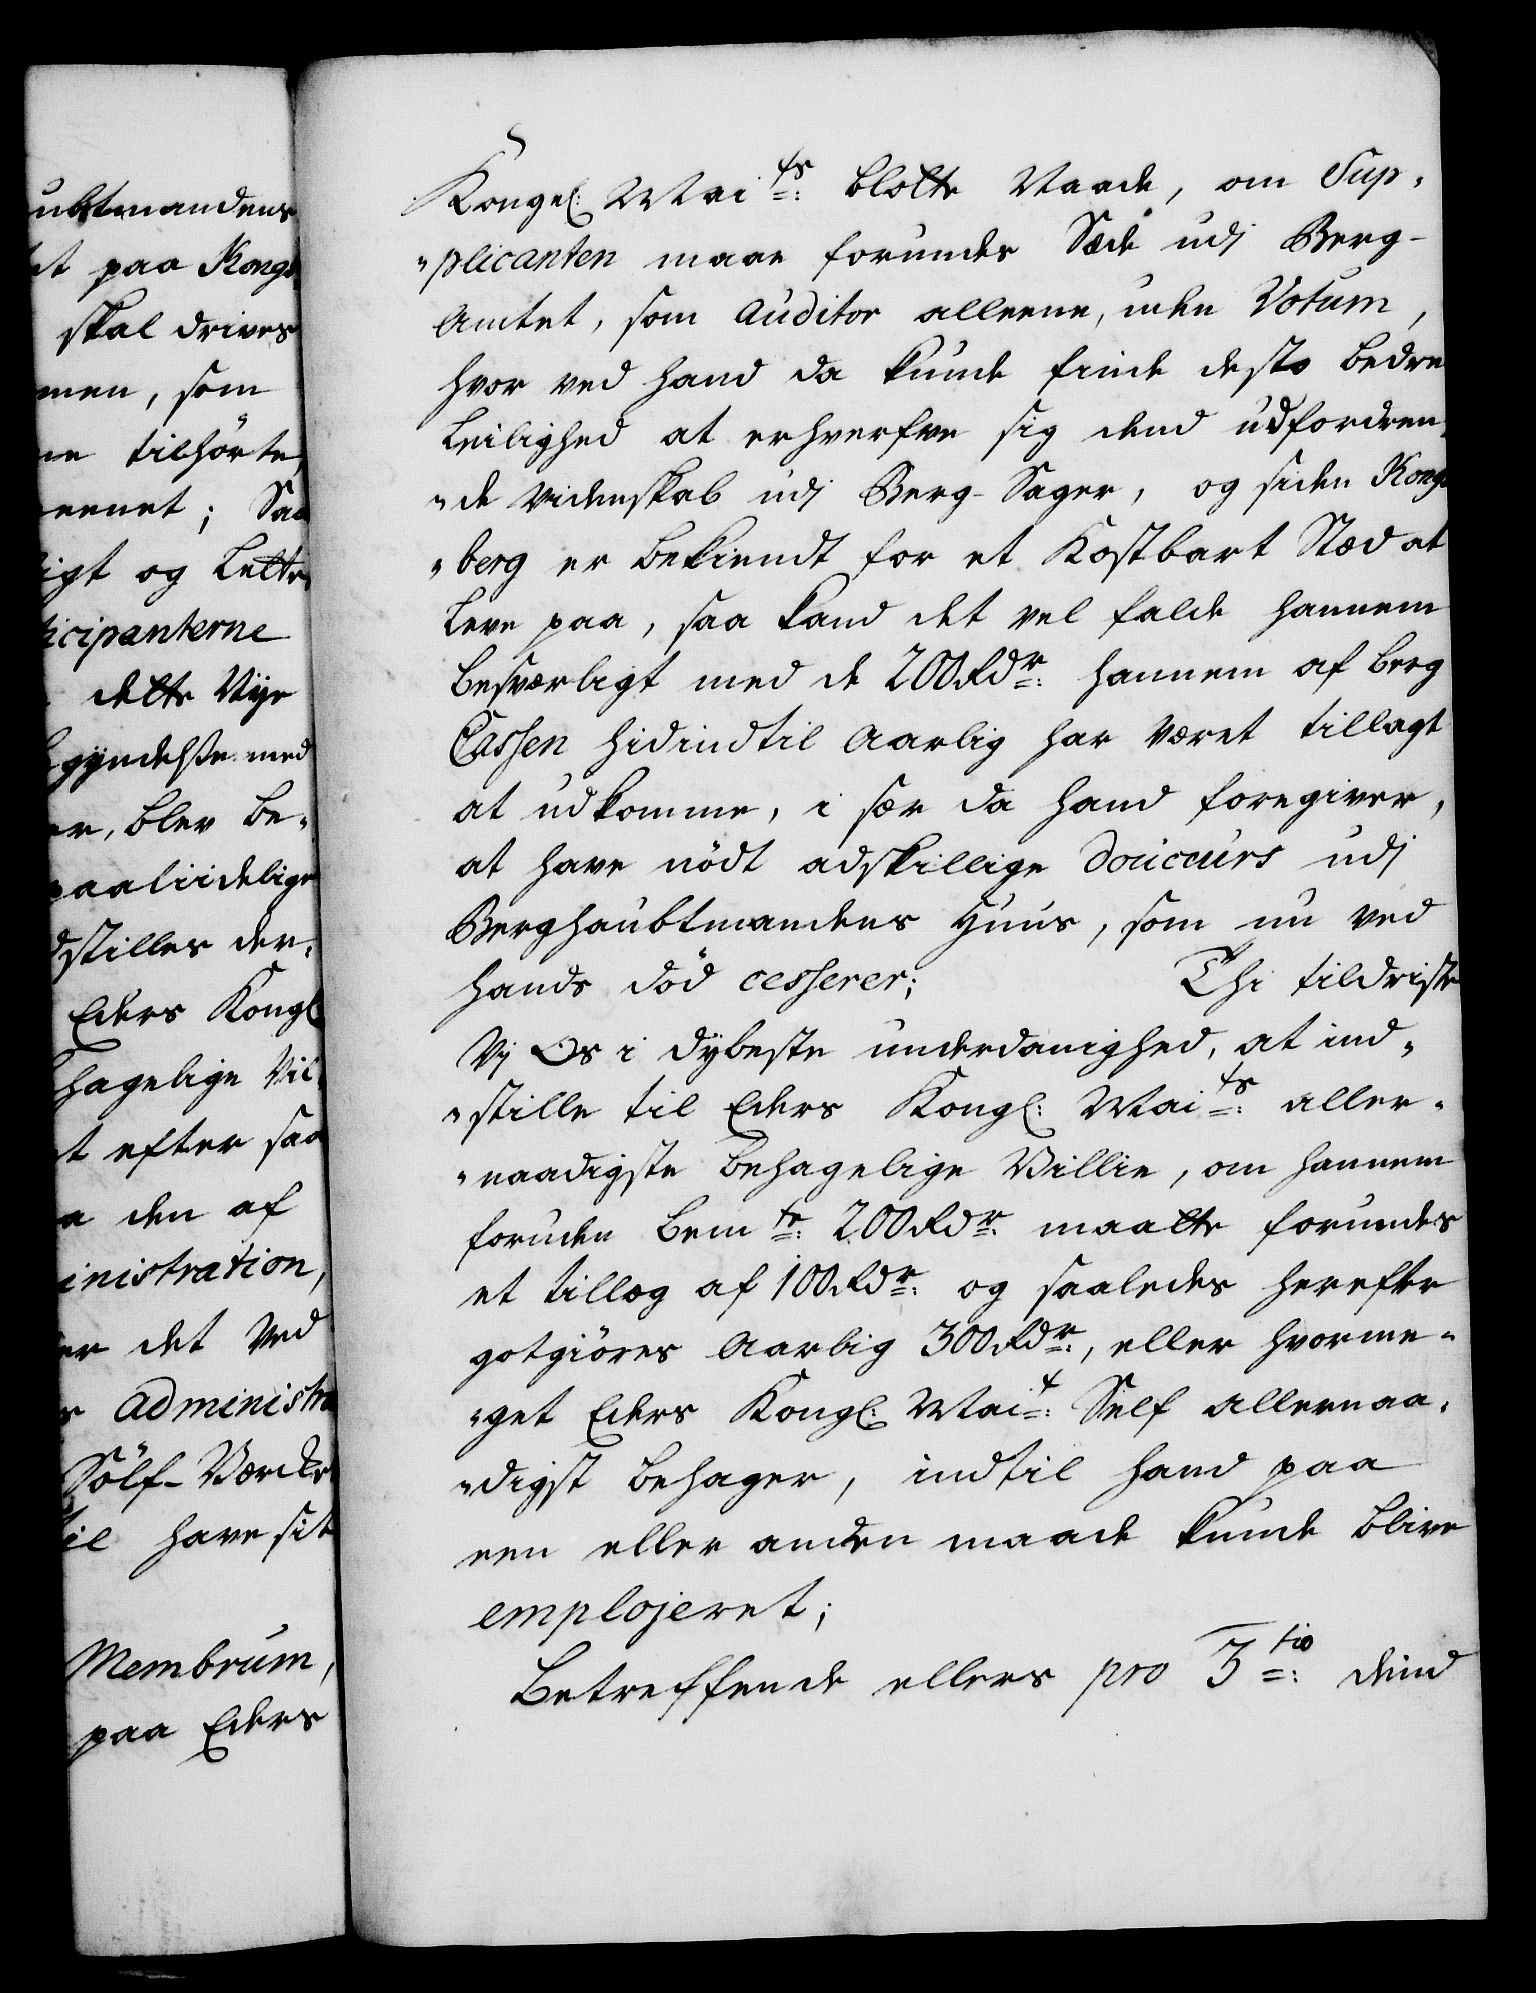 ubtmandens
et paa Kongs
skal drives
men, som
ne tilhörte,
eenet; Saa
igt og Lette
ticipanterne
dette Nye
gyndelse med
er, blev be„
paaliidelige
dstilles der„
Eders Kongl
hagelige Vil„
t efter saa
a den af
inistration,
er det Ved
r Administra
Sölf-Værcke
til have sit
Membrum,
paa Eders
Kongel: Mai<sup>ts</sup>: blotte Naade, om Sup„
„plicanten maae forundes Sæde udj Berg-
Amtet, som Auditor alleene, uden Votum,
hvor ved hand da kunde finde desto bedre
Leilighed at erhverfve sig dend udfordren„
„de Videnskab udj Berg-Sager, og siden Kongs
„berg er bekiendt for et Kostbart Stæd at
Leve paa, saa kand det vel falde hannem
besværligt med de 200 Rdr: hannem af Berg
Cassen hidindtil Aarlig har været tillagt
at udkomme, i sær da hand foregiver,
at have nödt adskillige douceurs udj
Berghaubtmandens Huus, som nu ved
hands död cesserer; Thi tildriste
Vj Os i dybeste underdanighed, at ind„
„stille til Eders Kongl: Mai<sup>ts</sup>: aller„
„naadigste behagelige Villie, om hannem
foruden bem<sup>te</sup>: 200 Rdr: maatte forundes
et tillæg af 100 Rdr: og saaledes herefter
gotgiöres Aarlig 300 Rdr:, eller hvorme„
„get Eders Kongl: Mai<sup>t</sup>: Self allernaa„
„digst behager, indtil hand paa
een eller anden maade kunde blive
emplojeret;
Betreffende ellers pro 3<sup>tio</sup>: dend